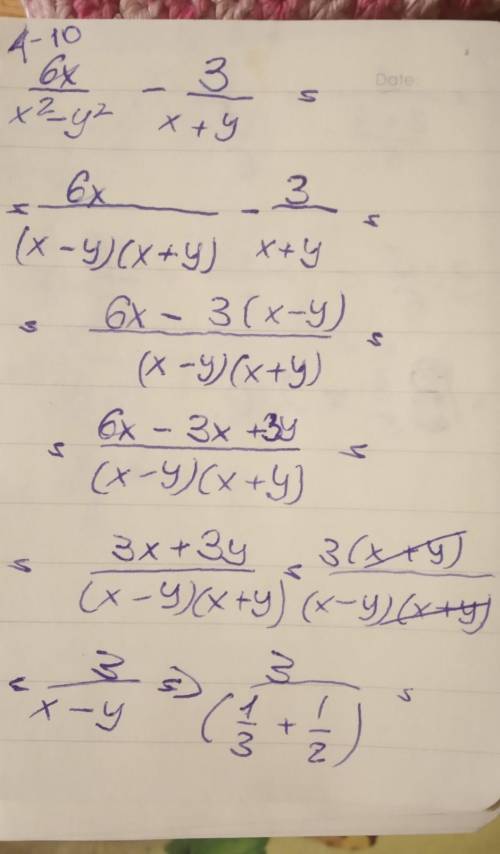 4-10
6x/(x²-y²) - 3/(x+y) =
= 6x/((x-y)(x+y)) - 3/(x+y) =
= (6x - 3(x-y))/((x-y)(x+y)) =
= (6x - 3x + 3y)/((x-y)(x+y)) =
= (3x+3y)/((x-y)(x+y)) = 3(x+y)/((x-y)(x+y))
= 3/(x-y) => 3/(1/3 + 1/2) =
Date